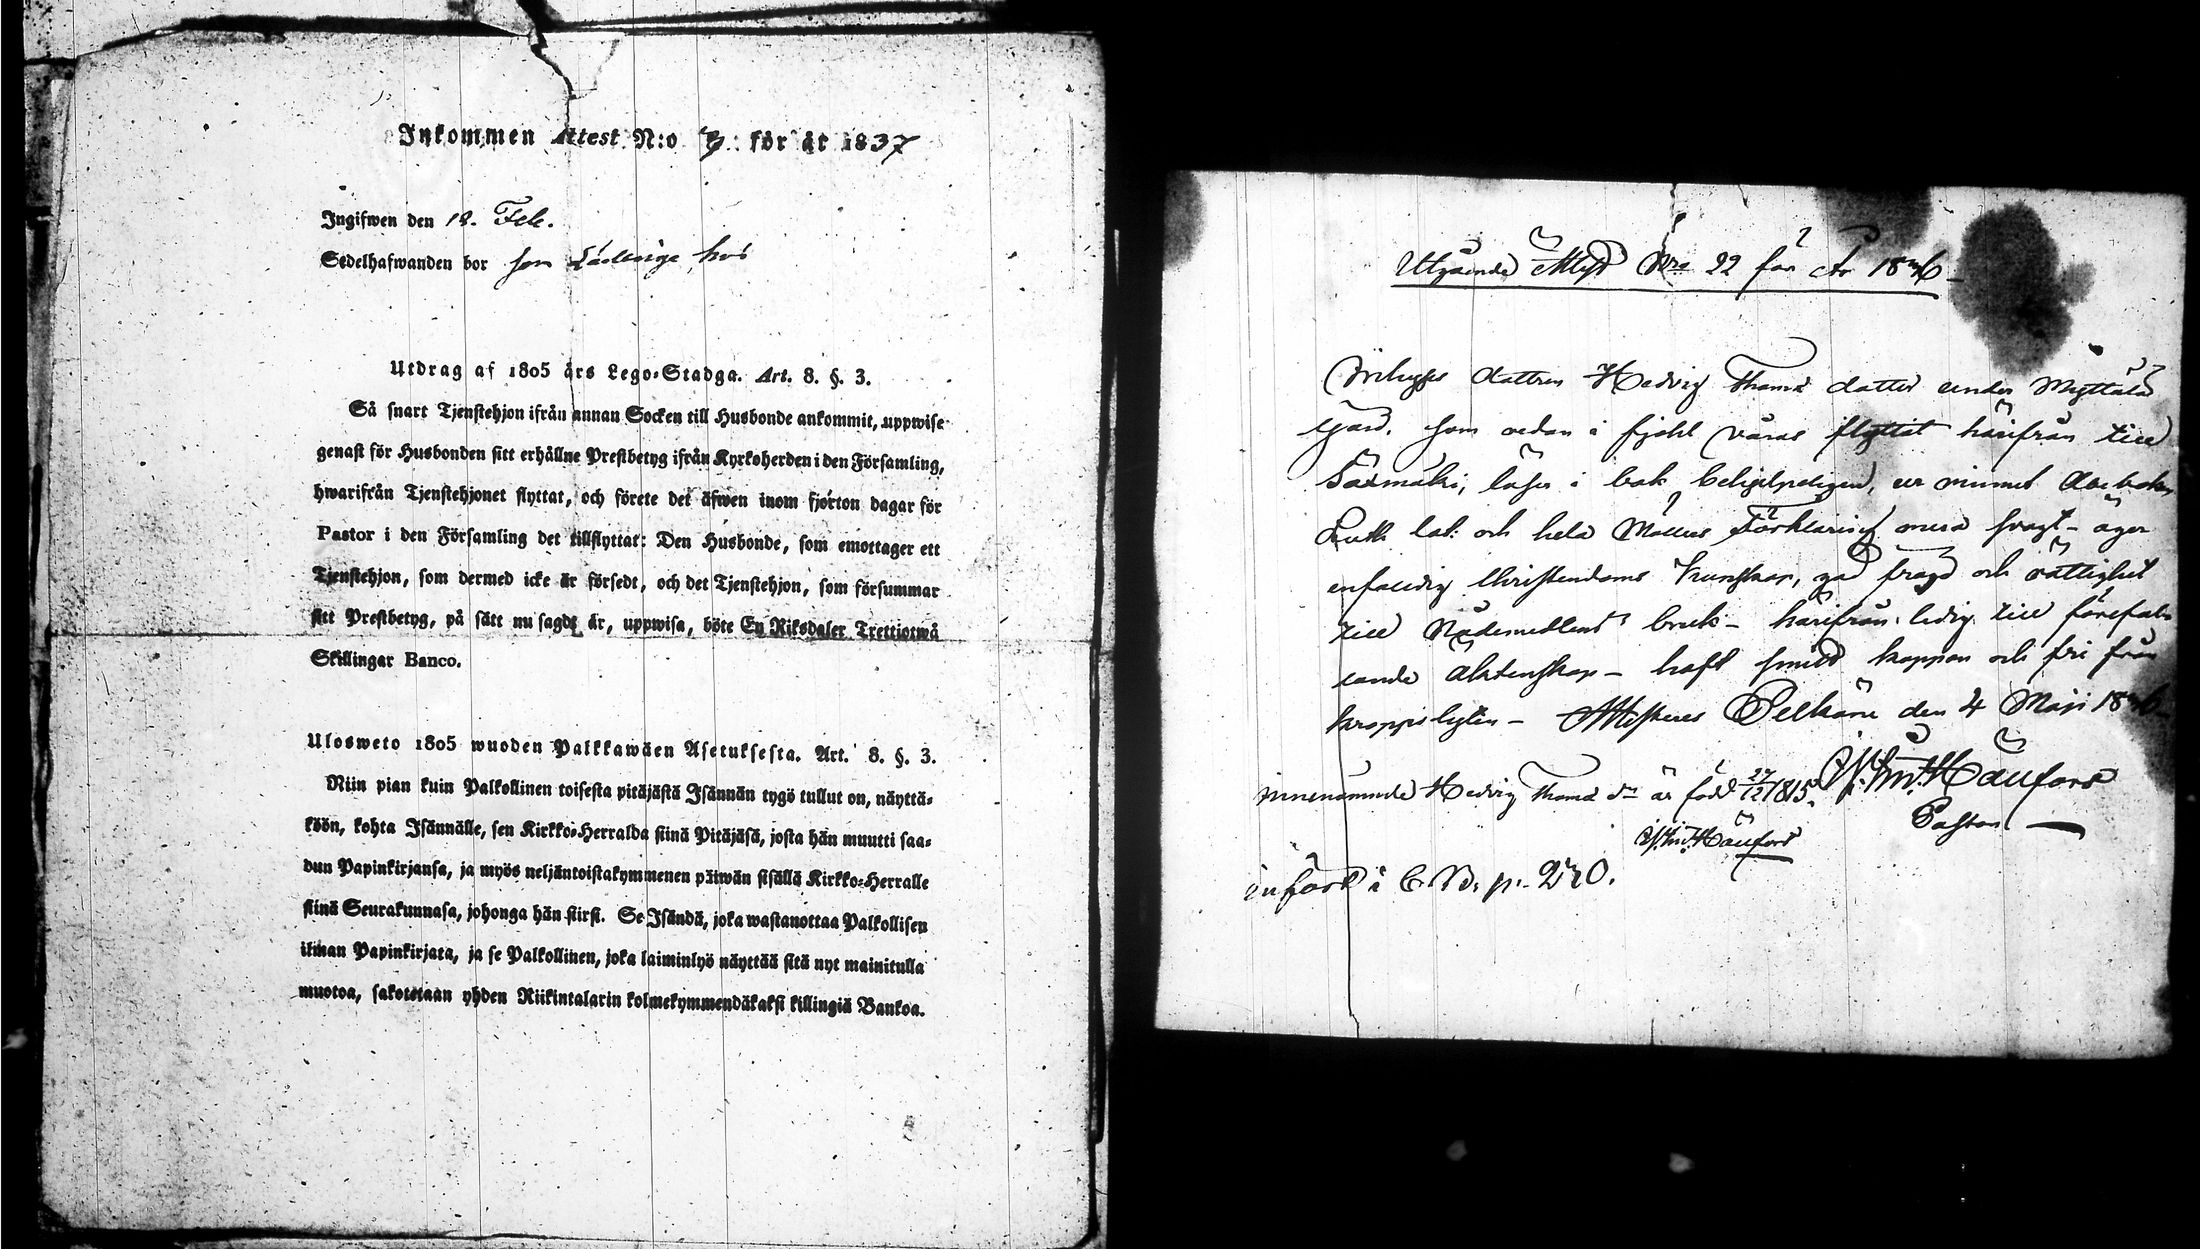 Inkommen Attest N:o 7. för år 1837
Ingifwen den 18. Feb.
Sedelhafwanden bor som hos
Utdrag af 1805 års Lego-Stadga. Art. 8. §. 3.
Så snart Tjenstehjon ifrån annan Socken till Husbonde ankommit, uppwise
genast för Husbonden sitt erhållne Prestbetyg ifrån Kyrkoherden i den Församling,
hwarifrån Tjenstehjonet flyttat, och förete det äfwen inom fjorton dagar för
Pastor i den Församling det tillflyttat: Den Husbonde, som emottager ett
Tjenstehjon, som dermed icke är försedt, och det Tjenstehjon, som försummar
sitt Prestbetyg, på sätt nu sagdt är, uppwisa, böte En Riksdaler Trettiotwå
Skillingar Banco.
Ulosweto 1805 wuoden Palkkawäen Asetuksesta. Art. 8. §. 3.
Niin pian kuin Palkollinen toisesta pitäjästä Isännän tygö tullut on, näyttä-
köön, kohta Isännälle, sen Kirkko-Herralda siinä Pitäjäsä, josta hän muutti saa-
dun Papinkirjansa, ja myös neljäntoistakymmenen päiwän sisällä Kirkko-Herralle
siinä Seurakunnasa, johonga hän siirsi. Se Isändä, joka wastanottaa Palkollisen
ilman Papinkirjata, ja se Palkollinen, joka laiminlyö näyttää sitä nyt mainitulla
muotoa, sakotetaan yhden Riikintalarin kolmekymmendäkaksi killingiä Bankoa.
Utgående Attest Nro 22 för År 18
dottren Hedvig Thomæ dotter under
gård, som redan i fjohl våras flyttat härifrån till
Säxmäki, läser i bok behjelpeligen, ur minnet Abcboken
Luth. cat: och hela Förklaring mera svagt - äger
enfaldig Christendoms kunskap, god frägd och rättighet
till Nådemedlens bruk - härifrån ledig till förefal-
lande äktenskap - haft små koppor och fri från
kroppslyten - Attesteres Pelkäne den 4 Maji 18
innenämnde Hedvig Thomæ dr är född 27/12 1815.
Pastor
införd i C. B. p. 270.